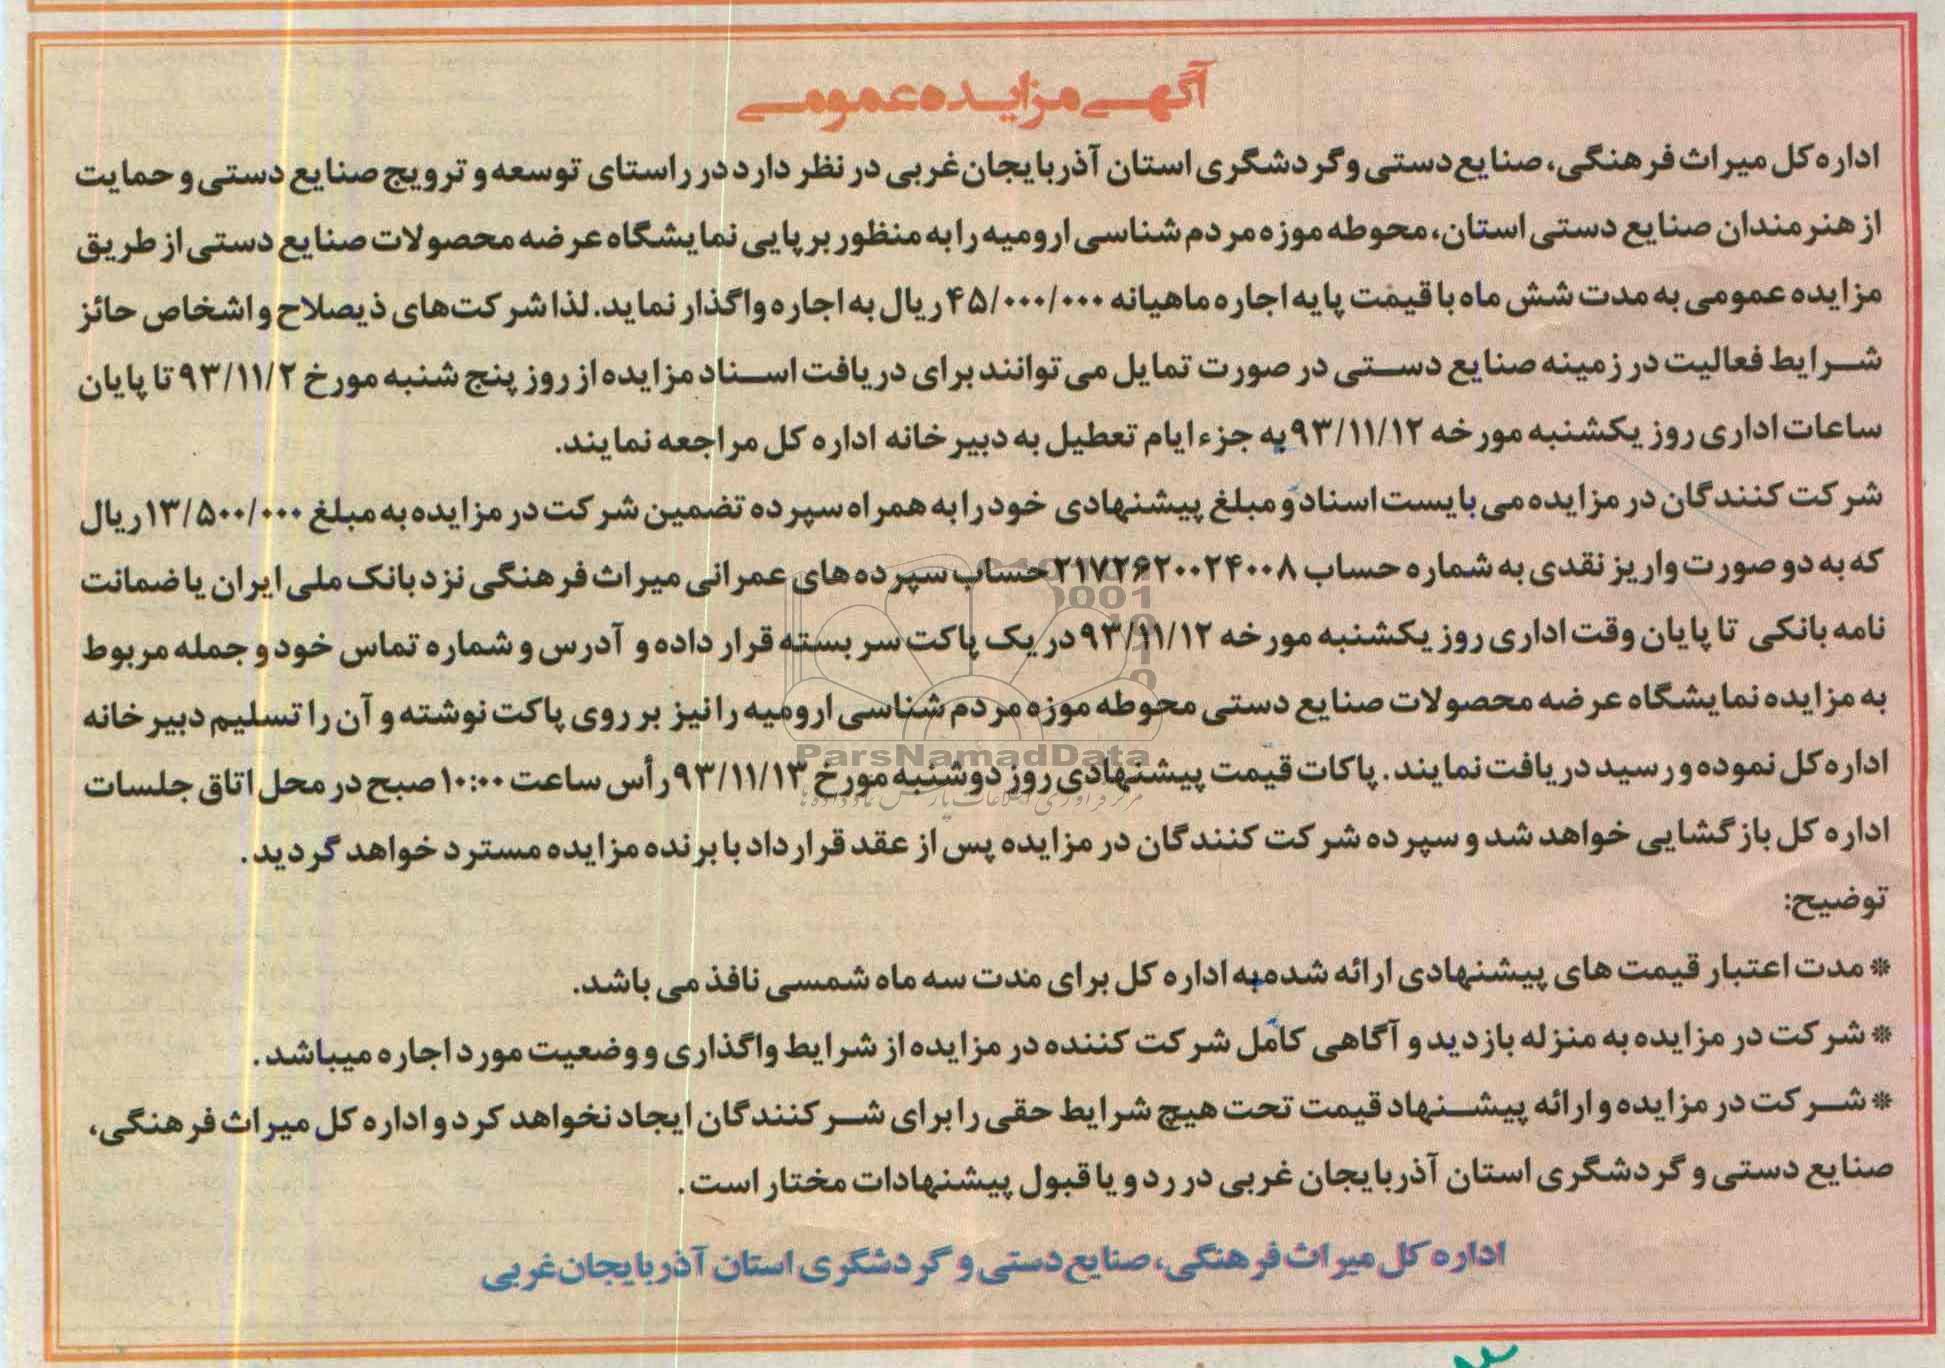 آگهی مزایده عمومی
اداره کل میراث فرهنگی، صنایع دستی و گردشگری استان آذربایجان غربی در نظر دارد در راستای توسعه و ترویج صنایع دستی و حمایت
از هنرمندان صنایع دستی استان، محوطه موزه مردم شناسی ارومیه را به منظور برپایی نمایشگاه عرضه محصولات صنایع دستی از طریق
مزایده عمومی به مدت شش ماه با قیمت پایه اجاره ماهیانه ۴۵/۰۰۰/۰۰۰ ریال به اجاره واگذار نماید. لذا شرکت‌های ذیصلاح و اشخاص حائز
شرایط فعالیت در زمینه صنایع دستی در صورت تمایل می توانند برای دریافت اسناد مزایده از روز پنج شنبه مورخ ۹۳/۱۱/۲ تا پایان
ساعات اداری روز یکشنبه مورخه ۹۳/۱۱/۱۲ به جزء ایام تعطیل به دبیرخانه اداره کل مراجعه نمایند.
شرکت کنندگان در مزایده می بایست اسناد و مبلغ پیشنهادی خود را به همراه سپرده تضمین شرکت در مزایده به مبلغ ۱۳/۵۰۰/۰۰۰ ریال
که به دو صورت واریز نقدی به شماره حساب ۲۱۷۲۶۲۰۰۲۴۰۰۸ حساب سپرده های عمرانی میراث فرهنگی نزد بانک ملی ایران یا ضمانت
نامه بانکی تا پایان وقت اداری روز یکشنبه مورخه ۹۳/۱۱/۱۲ در یک پاکت سر بسته قرار داده و آدرس و شماره تماس خود و جمله مربوط
به مزایده نمایشگاه عرضه محصولات صنایع دستی محوطه موزه مردم شناسی ارومیه را نیز بر روی پاکت نوشته و آن را تسلیم دبیرخانه
اداره کل نموده و رسید دریافت نمایند. پاکات قیمت پیشنهادی روز دوشنبه مورخ ۹۳/۱۱/۱۳ رأس ساعت ۱۰:۰۰ صبح در محل اتاق جلسات
اداره کل بازگشایی خواهد شد و سپرده شرکت کنندگان در مزایده پس از عقد قرارداد با برنده مزایده مسترد خواهد گردید.
توضیح:
* مدت اعتبار قیمت های پیشنهادی ارائه شده به اداره کل برای مدت سه ماه شمسی نافذ می باشد.
* شرکت در مزایده به منزله بازدید و آگاهی کامل شرکت کننده در مزایده از شرایط واگذاری و وضعیت مورد اجاره میباشد.
* شرکت در مزایده و ارائه پیشنهاد قیمت تحت هیچ شرایط حقی را برای شرکنندگان ایجاد نخواهد کرد و اداره کل میراث فرهنگی،
صنایع دستی و گردشگری استان آذربایجان غربی در رد و یا قبول پیشنهادات مختار است.
اداره کل میراث فرهنگی، صنایع دستی و گردشگری استان آذربایجان غربی
ParsNamadData